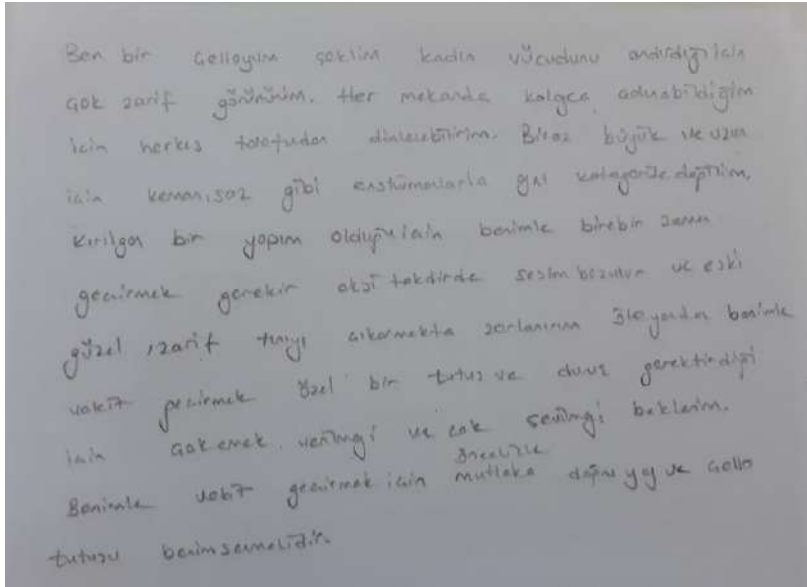 Ben bir çelloyum şeklim kadın vücudunu andırdığı için
çok zarif görünürüm. Her mekanda kolayca çalınabildiğim
için herkes tarafından dinlenebilirim. Biraz büyük ve uzun
için keman, saz gibi enstrümanlarla aynı kategoride değilim.
Kırılgan bir yapım olduğu için benimle birebir zaman
geçirmek gerekir aksi takdirde sesim bozulur ve eski
güzel, zarif tınıyı çıkarmakta zorlanırım öte yandan benimle
vakit geçirmek özel bir tutuş ve duruş gerektirdiği
için çok emek verilmeyi ve çok sevilmeyi beklerim.
öncelikle
Benimle vakit geçirmek için mutlaka doğru yay ve çello
tutuşu benimsenmelidir.